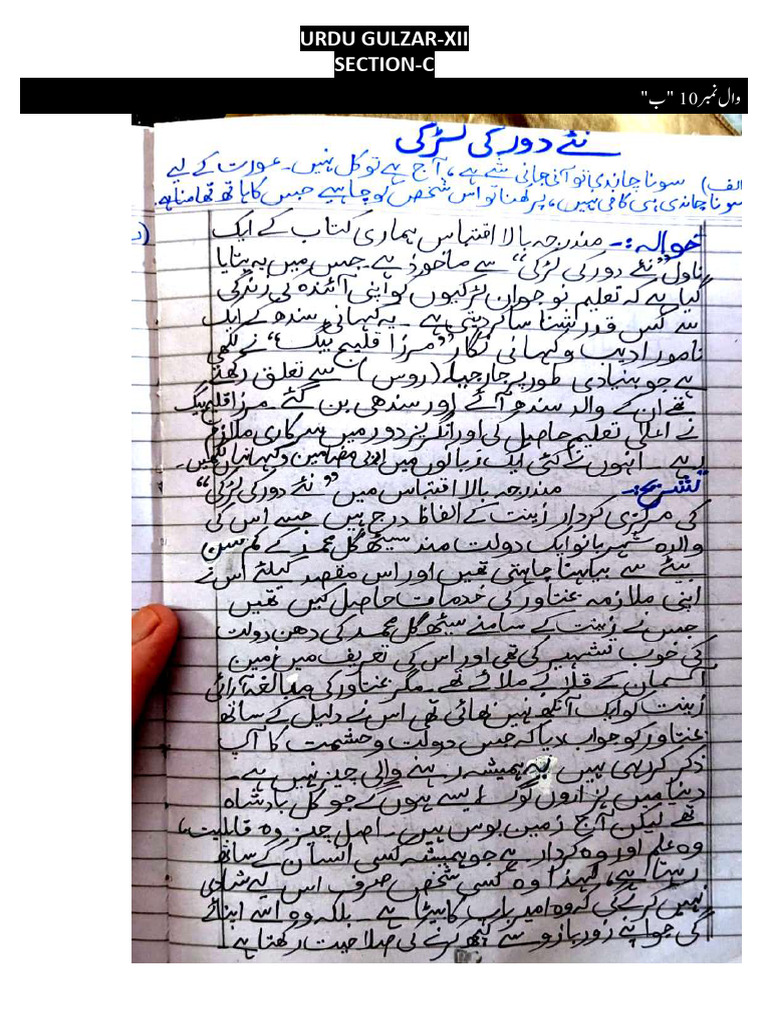 URDU GULZAR-XII
SECTION-C
وال نمبر 10 "ب"
نئے دور کی لڑکی
الف) سونا چاندی تو آنی جانی شے ہے، آج ہے تو کل نہیں۔ عورت کے لیے
سونا چاندی ہی کافی نہیں، پرکھنا تو اس شخص کو چاہیے جس کا ہاتھ تھامنا ہے۔
حوالہ:۔ مندرجہ بالا اقتباس ہماری کتاب کے ایک
ناول "نئے دور کی لڑکی" سے ماخوذ ہے۔ جس میں یہ بتایا
گیا ہے کہ تعلیم نوجوان لڑکیوں کو اپنی آئندہ کی زندگی
سے کس قدر شناسا کر دیتی ہے۔ یہ کہانی سندھ کے ایک
نامور ادیب و کہانی نگار "مرزا قلیچ بیگ" نے لکھی
ہے جو بنیادی طور پر جارجیا (روس) سے تعلق رکھتے
تھے ان کے والد سندھ آئے اور سندھی بن گئے۔ مرزا قلیچ بیگ
نے اعلیٰ تعلیم حاصل کی اور انگریز دور میں سرکاری ملازم
رہے۔ انہوں نے کئی ایک زبانوں میں ادبی مضامین و کہانیاں لکھیں۔
تشریح:۔ مندرجہ بالا اقتباس میں "نئے دور کی لڑکی"
کی مرکزی کردار زینت کے الفاظ درج ہیں جسے اس کی
والدہ شہر بانو ایک دولت مند سیٹھ گل محمد کے کم سن
بیٹے سے بیاہنا چاہتی تھیں اور اس مقصد کیلئے اس نے
اپنی ملازمہ بختاور کی خدمات حاصل کیں تھیں
جس نے زینت کے سامنے سیٹھ گل محمد کی دھن دولت
کی خوب تشہیر کی تھی اور اس کی تعریف میں زمین
آسمان کے قلابے ملائے تھے۔ مگر بختاور کی مبالغہ آرائی
زینت کو ایک آنکھ نہیں بھائی تھی اس نے دلیل کے ساتھ
بختاور کو جواب دیا کہ جس دولت و حشمت کا آپ
ذکر کر رہی ہیں یہ ہمیشہ رہنے والی چیز نہیں ہے۔
دنیا میں ہزاروں لوگ ایسے ہوں گے جو کل بادشاہ
تھے لیکن آج زمین بوس ہیں۔ اصل چیز وہ قابلیت،
وہ علم اور وہ کردار ہے جو ہمیشہ کسی انسان کے ساتھ
رہتا ہے، لہٰذا وہ کسی شخص صرف اس لیے شادی
نہیں کرے گی کہ وہ امیر باپ کا بیٹا ہے۔ بلکہ وہ اسے اپنائے
گی جو اپنے زور بازو سے کچھ کرنے کی صلاحیت رکھتا ہے